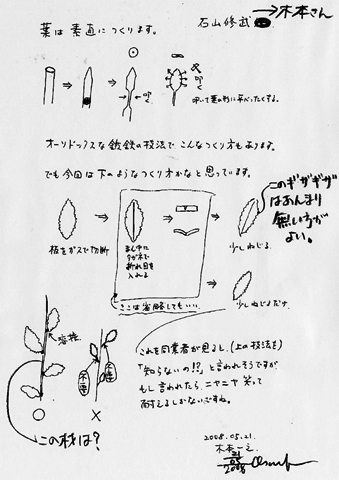 →木本さん
石山修武
葉は素直につくります。
叩く
叩く
叩いて葉の形に平べったくする。
オーソドックスな鍛鉄の技法でこんなつくり方もあります。
でも今回は下のようなつくり方かなと思っています。
板をガスで切断
まん中に
タガネで
折れ目を
入れる
少しねじる
このギザギザ
はあんまり
無い方が
よい。
ここは省略してもいい。
少しねじるだけ
溶接
○
×
この枝は?
これを同業者が見ると、(上の技法を)
「知らないの!?」と言われそうですが、
もし言われたら、ニヤニヤ笑って
耐えるしかないですね。
2008.05.21.
木本一之
21
05
2008